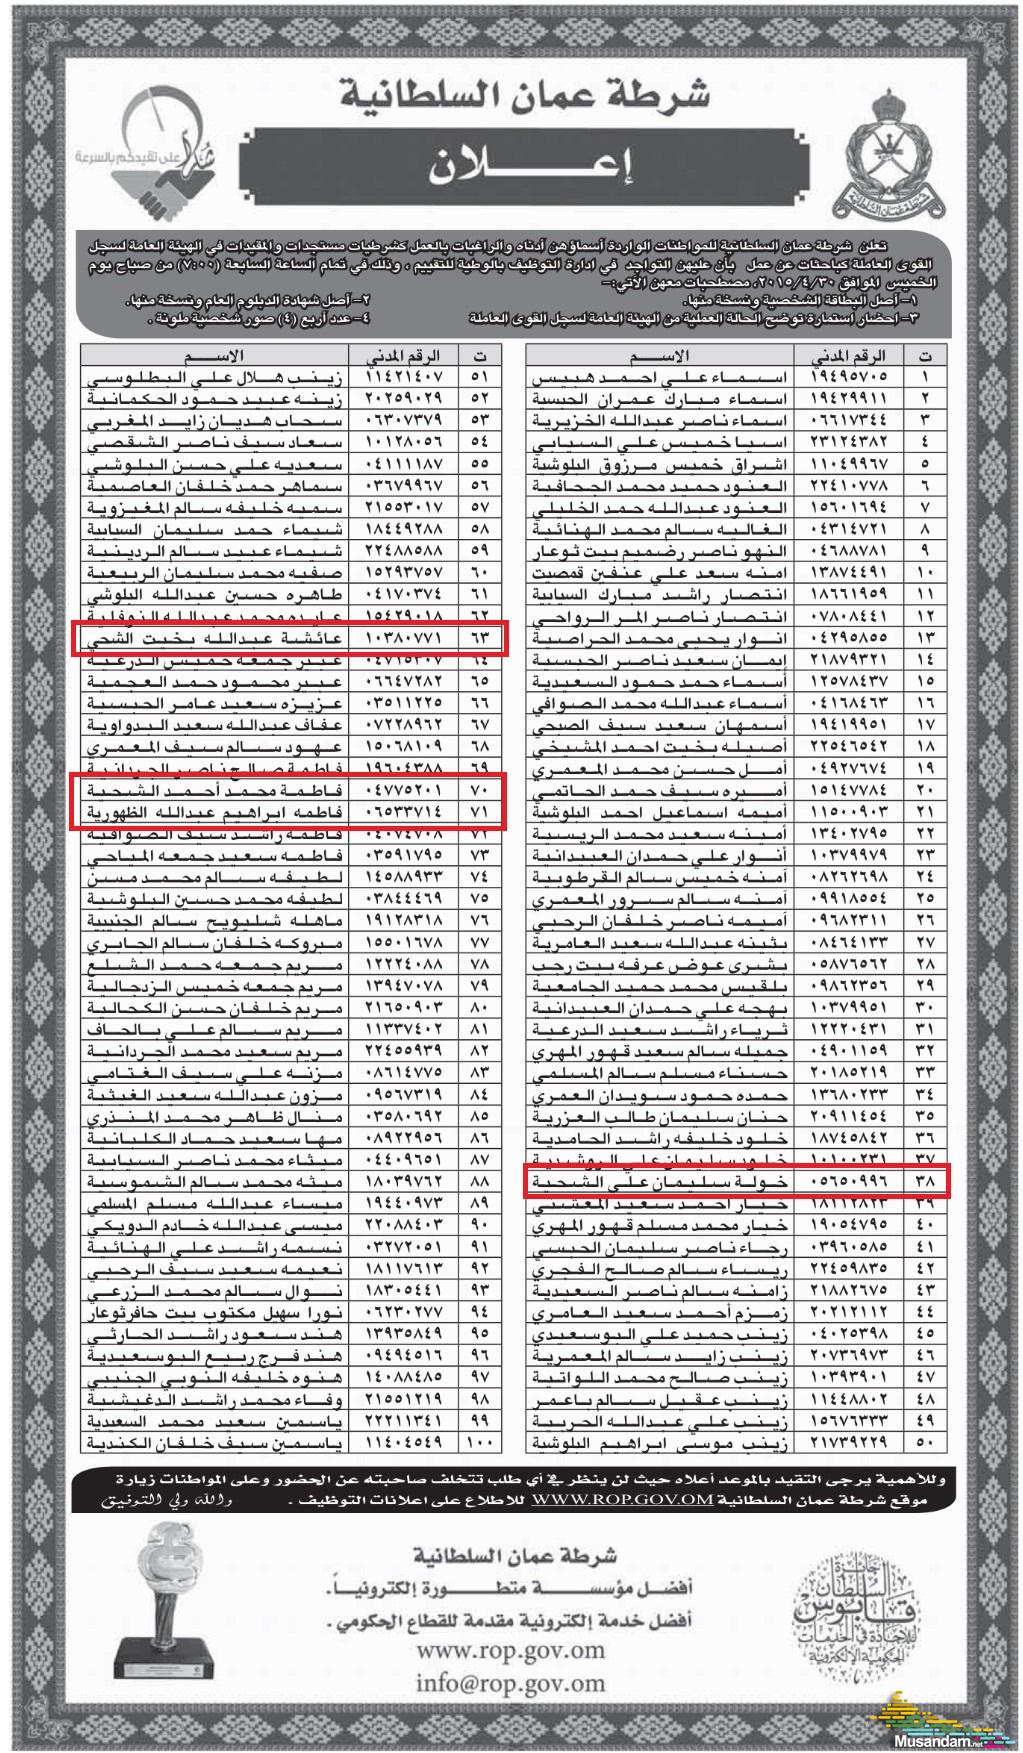 شرطة عمان السلطانية
إعلان
شكراً على تقيدكم بالسرعة
شرطة عمان السلطانية
تعلن شرطة عمان السلطانية للمواطنات الواردة أسماؤهن أدناه والراغبات بالعمل كشرطيات مستجدات والمقيدات في الهيئة العامة لسجل
القوى العاملة كباحثات عن عمل بأن عليهن التواجد في ادارة التوظيف بالوطية للتقييم ، وذلك في تمام الساعة السابعة (٧:٠٠) من صباح يوم
الخميس الموافق ٢٠١٥/٤/٣٠، مصطحبات معهن الآتي:-
١- أصل البطاقة الشخصية ونسخة منها. ٢- أصل شهادة الدبلوم العام ونسخة منها.
٣- إحضار استمارة توضح الحالة العملية من الهيئة العامة لسجل القوى العاملة ٤- عدد أربع (٤) صور شخصية ملونة .
ت الرقم المدني الاسم
١ ١٩٤٩٥٧٠٥ اسماء علي احمد هبيس
٢ ١٩٤٢٩٩١١ اسماء مبارك عمران الحبسية
٣ ٠٦٦١٧٣٤٤ اسماء ناصر عبدالله الخزيرية
٤ ٢٣١٢٤٣٨٢ اسيا خميس علي السيابي
٥ ١١٠٤٩٩٦٧ اشراق خميس مرزوق البلوشية
٦ ٢٢٤١٠٧٧٨ العنود حميد محمد الجحافية
٧ ١٥٦٠١٦٩٤ العنود عبدالله حمد الخليلي
٨ ٠٤٣١٤٧٢١ الغاليه سالم محمد الهنائية
٩ ٠٤٦٨٨٧٨١ النهو ناصر رضميم بيت ثوعار
١٠ ١٣٨٧٤٤٩١ امنه سعد علي عنفين قمصيت
١١ ١٨٦٦١٩٥٩ انتصار راشد مبارك السيابية
١٢ ٠٧٨٠٨٤٤١ انتصار ناصر المر الرواحي
١٣ ٠٤٢٩٥٨٥٥ انوار يحيى محمد الحراصية
١٤ ٢١٨٧٩٣٢١ إيمان سعيد ناصر الحبسية
١٥ ١٢٥٧٨٤٣٧ أسماء حمد حمود السعيدية
١٦ ٠٤١٦٨٤٦٣ أسماء عبدالله محمد الصوافي
١٧ ١٩٤١٩٩٥١ أسمهان سعيد سيف الصبحي
١٨ ٢٢٥٤٦٥٤٢ أصيله بخيت احمد المشيخي
١٩ ٠٤٩٢٧٦٧٤ أمل حسن محمد المعمري
٢٠ ١٥١٤٧٧٨٤ أميره سيف حمد الحاتمي
٢١ ١١٥٠٠٩٠٣ أميمه اسماعيل احمد البلوشية
٢٢ ١٣٤٠٢٧٩٥ أمينه سعيد محمد الريسية
٢٣ ١٠٣٧٩٩٧٩ أنوار علي حمدان العبيدانية
٢٤ ٠٨٢٦٢٦٩٨ آمنه خميس سالم القرطوبية
٢٥ ٠٩٩١٨٥٥٤ آمنه سالم سرور المعمري
٢٦ ٠٩٦٨٢٣١١ آميمه ناصر خلفان الرحبي
٢٧ ٠٨٤٦٤١٣٣ بثينه عبدالله سعيد العامرية
٢٨ ٠٥٨٧٦٥٦٢ بشرى عوض عرفه بيت رجب
٢٩ ٠٩٨٦٢٣٥٦ بلقيس محمد حميد الجامعية
٣٠ ١٠٣٧٩٩٥١ بهجه علي حمدان العبيدانية
٣١ ١٢٢٢٠٤٣١ ثرياء راشد سعيد الدرعية
٣٢ ٠٤٩٠١١٥٩ جميله سالم سعيد قهور المهري
٣٣ ٢٠١٨٥٢١٩ حسناء مسلم سالم المسلمي
٣٤ ١٣٦٨٠٢٣٣ حمده حمود سويدان العمري
٣٥ ٢٠٩١١٤٥٤ حنان سليمان طالب العزرية
٣٦ ١٨٧٤٥٨٤٢ خلود خليفه راشد الحامدية
٣٧ ١٠١٠٠٢٣١ خلود سليمان علي الروشيدية
٣٨ ٠٥٦٥٠٩٩٦ خولة سليمان علي الشحية
٣٩ ١٨١١٢٨٢٣ خيار احمد سعيد المعشني
٤٠ ١٩٠٥٤٧٩٥ خيار محمد مسلم قهور المهري
٤١ ٠٣٩٦٠٥٨٥ رجاء ناصر سليمان الحبسي
٤٢ ٢٢٤٥٩٨٣٥ ريساء سالم صالح الفجري
٤٣ ٢١٨٨٢٦٧٥ زامنه سالم ناصر السعيدية
٤٤ ٢٠٢١٢١١٢ زمزم أحمد سعيد العامري
٤٥ ٠٤٠٢٥٣٩٨ زينب حميد علي البوسعيدي
٤٦ ٢٠٧٣٦٩٧٣ زينب زايد سالم المعمرية
٤٧ ١٠٣٩٣٩٠١ زينب صالح محمد اللواتية
٤٨ ١١٤٤٨٨٠٢ زينب عقيل سالم باعمر
٤٩ ١٥٦٧٦٣٣٣ زينب علي عبدالله الحربية
٥٠ ٢١٧٣٩٢٢٩ زينب موسى ابراهيم البلوشية
ت الرقم المدني الاسم
٥١ ١١٤٢١٤٠٧ زينب هلال علي البطلوسي
٥٢ ٢٠٢٥٩٠٢٩ زينه عبيد حمود الحكمانية
٥٣ ٠٦٣٠٧٣٧٩ سحاب هديان زايد المغربي
٥٤ ١٠١٢٨٠٥٦ سعاد سيف ناصر الشقصي
٥٥ ٠٤١١١١٨٧ سعديه علي حسن البلوشي
٥٦ ٠٣٦٧٩٩٦٧ سماهر حمد خلفان العاصمية
٥٧ ٢١٥٥٣٠١٧ سميه خليفه سالم المغيزوية
٥٨ ١٨٤٤٩٢٨٨ شيماء حمد سليمان السيابية
٥٩ ٢٢٤٨٨٥٨٨ شيماء عبيد سالم الردينية
٦٠ ١٥٢٩٣٧٥٧ صفيه محمد سليمان الربيعية
٦١ ٠٤١٧٠٣٧٤ طاهره حسين عبدالله البلوشي
٦٢ ١٥٤٢٩٠١٨ عايده محمد عبدالله النوفلية
٦٣ ١٠٣٨٠٧٧١ عائشة عبدالله بخيت الشحي
٦٤ ٠٤٧١٥٣٠٧ عبير جمعه خميس الدرعية
٦٥ ٠٦٦٤٧٢٨٢ عبير محمود حمد العجمية
٦٦ ٠٣٥١١٢٢٥ عزيزه سعيد عامر الحبسية
٦٧ ٠٧٢٢٨٩٦٢ عفاف عبدالله سعيد البدواوية
٦٨ ١٥٠٦٨١٠٩ عهود سالم سيف المعمري
٦٩ ١٩٦٠٤٣٨٨ فاطمة صالح ناصر الجردانية
٧٠ ٠٤٧٧٥٢٠١ فاطمة محمد أحمد الشحية
٧١ ٠٦٥٣٣٧١٤ فاطمه ابراهيم عبدالله الظهورية
٧٢ ٠٤٠٧٤٧٠٨ فاطمه راشد سيف الصوافية
٧٣ ٠٣٥٩١٧٩٥ فاطمه سعيد جمعه المياحي
٧٤ ١٤٥٨٨٩٣٣ لطيفه سالم محمد مسن
٧٥ ٠٣٨٤٤٤٦٩ لطيفه محمد حسين البلوشية
٧٦ ١٩١٢٨٣١٨ ماهله شليويح سالم الجنيبية
٧٧ ١٥٥٠١٦٧٨ مبروكه خلفان سالم الجابري
٧٨ ١٢٢٢٤٠٨٨ مريم جمعه حمد الشبلع
٧٩ ١٣٩٤٧٠٧٨ مريم جمعه خميس الزدجالية
٨٠ ٢١٦٥٠٩٠٣ مريم خلفان حسن الكحالية
٨١ ١١٣٣٧٤٠٢ مريم سالم علي بالحاف
٨٢ ٢٢٤٥٥٩٣٩ مريم سعيد محمد الجردانية
٨٣ ٠٨٦١٤٧٧٥ مزنه علي سيف الغتامي
٨٤ ٠٩٥٦٧٣١٩ مزون عبدالله سعيد الغيثية
٨٥ ٠٣٥٨٠٦٩٢ منال ظاهر محمد المنذري
٨٦ ٠٨٩٢٢٩٥٦ مها سعيد حماد الكلبانية
٨٧ ٠٤٤٠٩٦٥١ ميثاء محمد ناصر السيابية
٨٨ ١٨٠٣٩٧٦٢ ميثه محمد سالم الشموسية
٨٩ ١٩٤٤٠٩٧٣ ميساء عبدالله مسلم المسلمي
٩٠ ٢٢٠٨٨٤٠٣ ميسى عبدالله خادم الدويكي
٩١ ٠٣٢٧٢٠٥١ نسمه راشد علي الهنائية
٩٢ ١٨١١٧٦١٣ نعيمه سعيد سيف الرحبي
٩٣ ١٨٣٠٥٤٤١ نوال سالم محمد الزرعي
٩٤ ٠٦٢٣٠٢٧٧ نورا سهيل مكتوب بيت حافرثوعار
٩٥ ١٣٩٣٥٨٤٩ هند سعود راشد الحارثي
٩٦ ٠٩٤٩٤٥١٦ هند فرج ربيع البوسعيدية
٩٧ ١٤٠٨٨٤٨٥ هنوه خليفه النوبي الجنيبي
٩٨ ٢١٥٥١٢١٩ وفاء محمد راشد الدغيشية
٩٩ ٢٢٢١١٣٤١ ياسمين سعيد محمد السعيدية
١٠٠ ١١٤٠٤٥٤٩ ياسمين سيف خلفان الكندية
وللأهمية يرجى التقيد بالموعد أعلاه حيث لن ينظر في أي طلب تتخلف صاحبته عن الحضور وعلى المواطنات زيارة
موقع شرطة عمان السلطانية WWW.ROP.GOV.OM للاطلاع على اعلانات التوظيف . والله ولي التوفيق
شرطة عمان السلطانية
أفضل مؤسسة متطورة إلكترونياً.
أفضل خدمة إلكترونية مقدمة للقطاع الحكومي .
www.rop.gov.om
info@rop.gov.om
جائزة
السلطان
قابوس
للإجادة في الخدمات
الحكومية الإلكترونية
Musandam.net